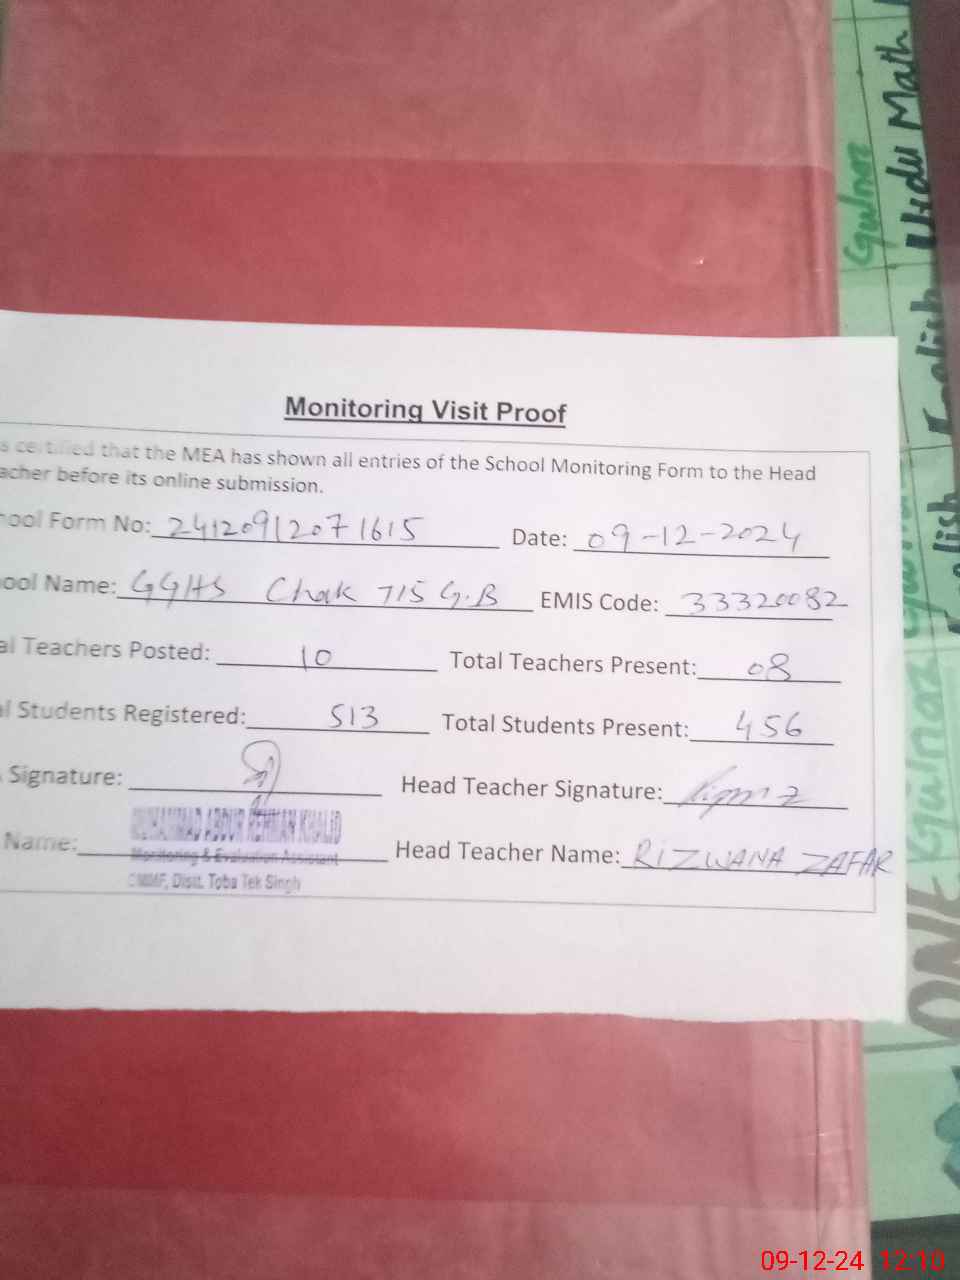 Monitoring Visit Proof
s certified that the MEA has shown all entries of the School Monitoring Form to the Head
acher before its online submission.
hool Form No: 2412091207 1615 Date: 09-12-2024
ool Name: GGHS Chak 715 G.B EMIS Code: 33320082
al Teachers Posted: 10 Total Teachers Present: 08
al Students Registered: 513 Total Students Present: 456
Signature: Head Teacher Signature:
Name: MUHAMMAD ABDUR REHMAN KHALID Head Teacher Name: RIZWANA ZAFAR
Monitoring & Evaluation Assistant
CMMF, Distt. Toba Tek Singh
Gulnaz
Urdu Math
English
Gulnaz
ONE
09-12-24 12:10